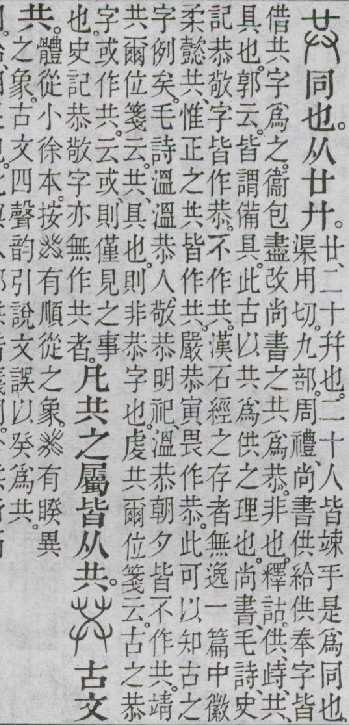 同也。从廿廾。
廿、二十幷也。二十人皆竦手是爲同也
渠用切。九部。周禮、尚書供給供奉字皆
借共字爲之。衞包盡改尚書之共爲恭。非也。釋詁。供峙共、
具也。郭云。皆謂備具。此古以共爲供之理也。尚書毛詩史
記恭敬字皆作恭。不作共。漢石經之存者無逸一篇中徽
柔懿共、惟正之共皆作共。嚴恭寅畏作恭。此可以知古之
字例矣。毛詩溫溫恭人、敬恭明祀、溫恭朝夕皆不作共。靖
共爾位箋云。共、具也。則非恭字也。虔共爾位箋云。古之恭
字或作共。云或、則僅見之事
也。史記恭敬字亦無作共者。
凡共之屬皆从共。古文
共。
體從小徐本。按有順從之象。有睽異
之象。古文四聲韵引說文誤以癸爲共。